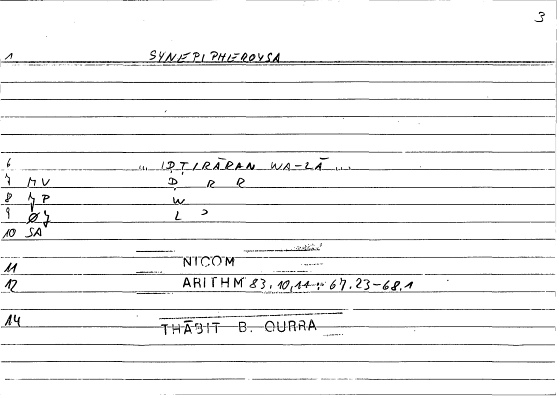 3
1 SYNEPIPHEROYSA
6 ... IḌṬIRĀRAN WA-LĀ ...
7 MV Ḍ R R
8 P W
9 L ɔ
10 SA
11 NICOM
12 ARITHM 83, 10, 11 : 67, 23-68, 1
14 THĀBIT B. QURRA